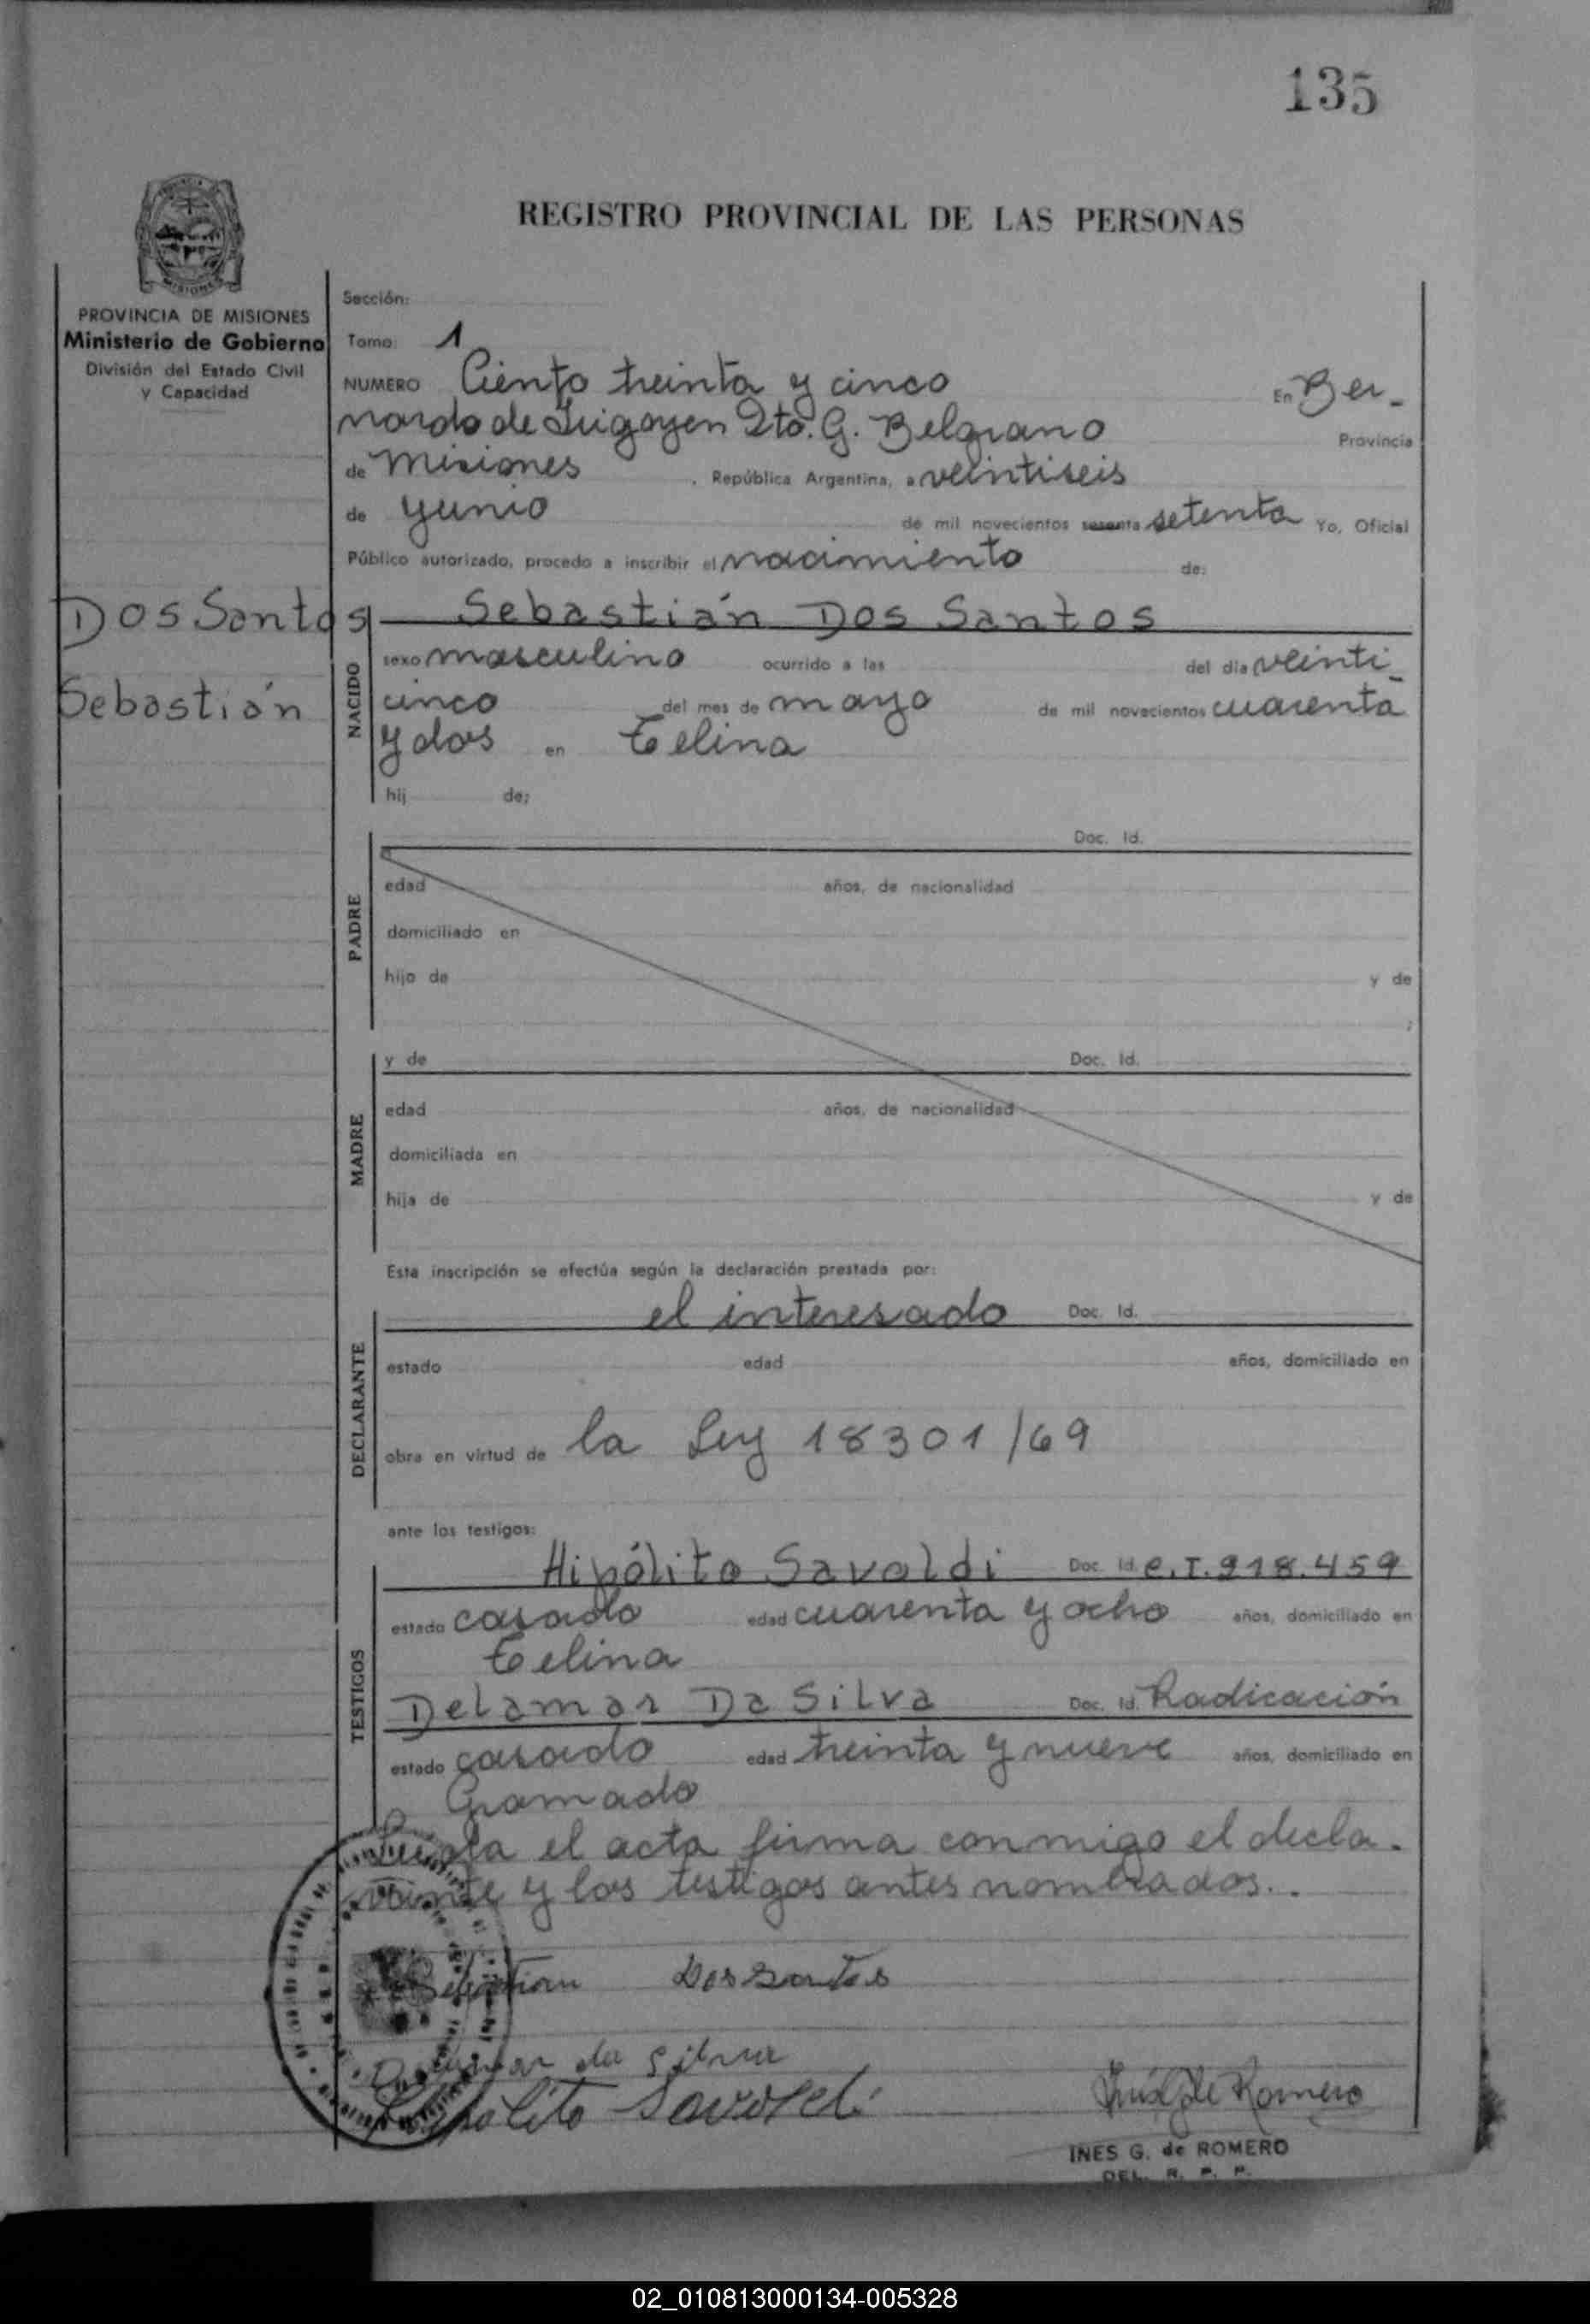 135
REGISTRO PROVINCIAL DE LAS PERSONAS
PROVINCIA DE MISIONES
Ministerio de Gobierno
División del Estado Civil
y Capacidad
Sección:
Tomo: 1
NUMERO Ciento treinta y cinco En Ber-
nardo de Irigoyen Dto. G. Belgrano Provincia
de Misiones, República Argentina, a veintiseis
de yunio de mil novecientos sesenta setenta Yo, Oficial
Público autorizado, procedo a inscribir el nacimiento de:
Dos Santos
Sebastián
NACIDO
Sebastián Dos Santos
sexo masculino ocurrido a las del día veinti-
cinco del mes de mayo de mil novecientos cuarenta
y dos en Celina
hij de;
PADRE
Doc. Id.
edad años, de nacionalidad
domiciliado en
hijo de y de
;
MADRE
y de Doc. Id.
edad años, de nacionalidad
domiciliada en
hija de y de
Esta inscripción se efectúa según la declaración prestada por:
DECLARANTE
el interesado Doc. Id.
estado edad años, domiciliado en
obra en virtud de la Ley 18301/69
ante los testigos:
TESTIGOS
Hipólito Savoldi Doc. Id. C.I. 918.459
estado casado edad cuarenta y ocho años, domiciliado en
Celina
Delamar Da Silva Doc. Id. Radicación
estado casado edad treinta y nueve años, domiciliado en
Gramado
Leída el acta firma conmigo el decla-
rante y los testigos antes nombrados..
Sebastian Dos Santos
Delamar da Silva
Hipolito Savoldi
Inés G de Romero
INES G. de ROMERO
DEL. R. P. P.
02_010813000134-005328